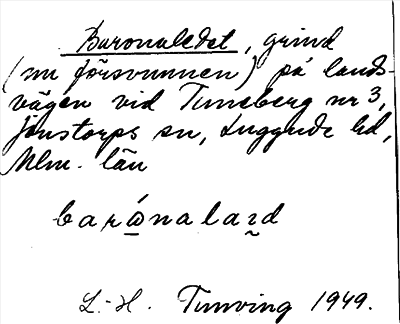 Baronaledet, grind
(nu försvunnen) på lands-
vägen vid Tuneberg nr 3,
Jonstorps sn, Luggude hd,
Mlm. län
barώ̲nalaɪ̰d
L.-H. Tunving 1949.